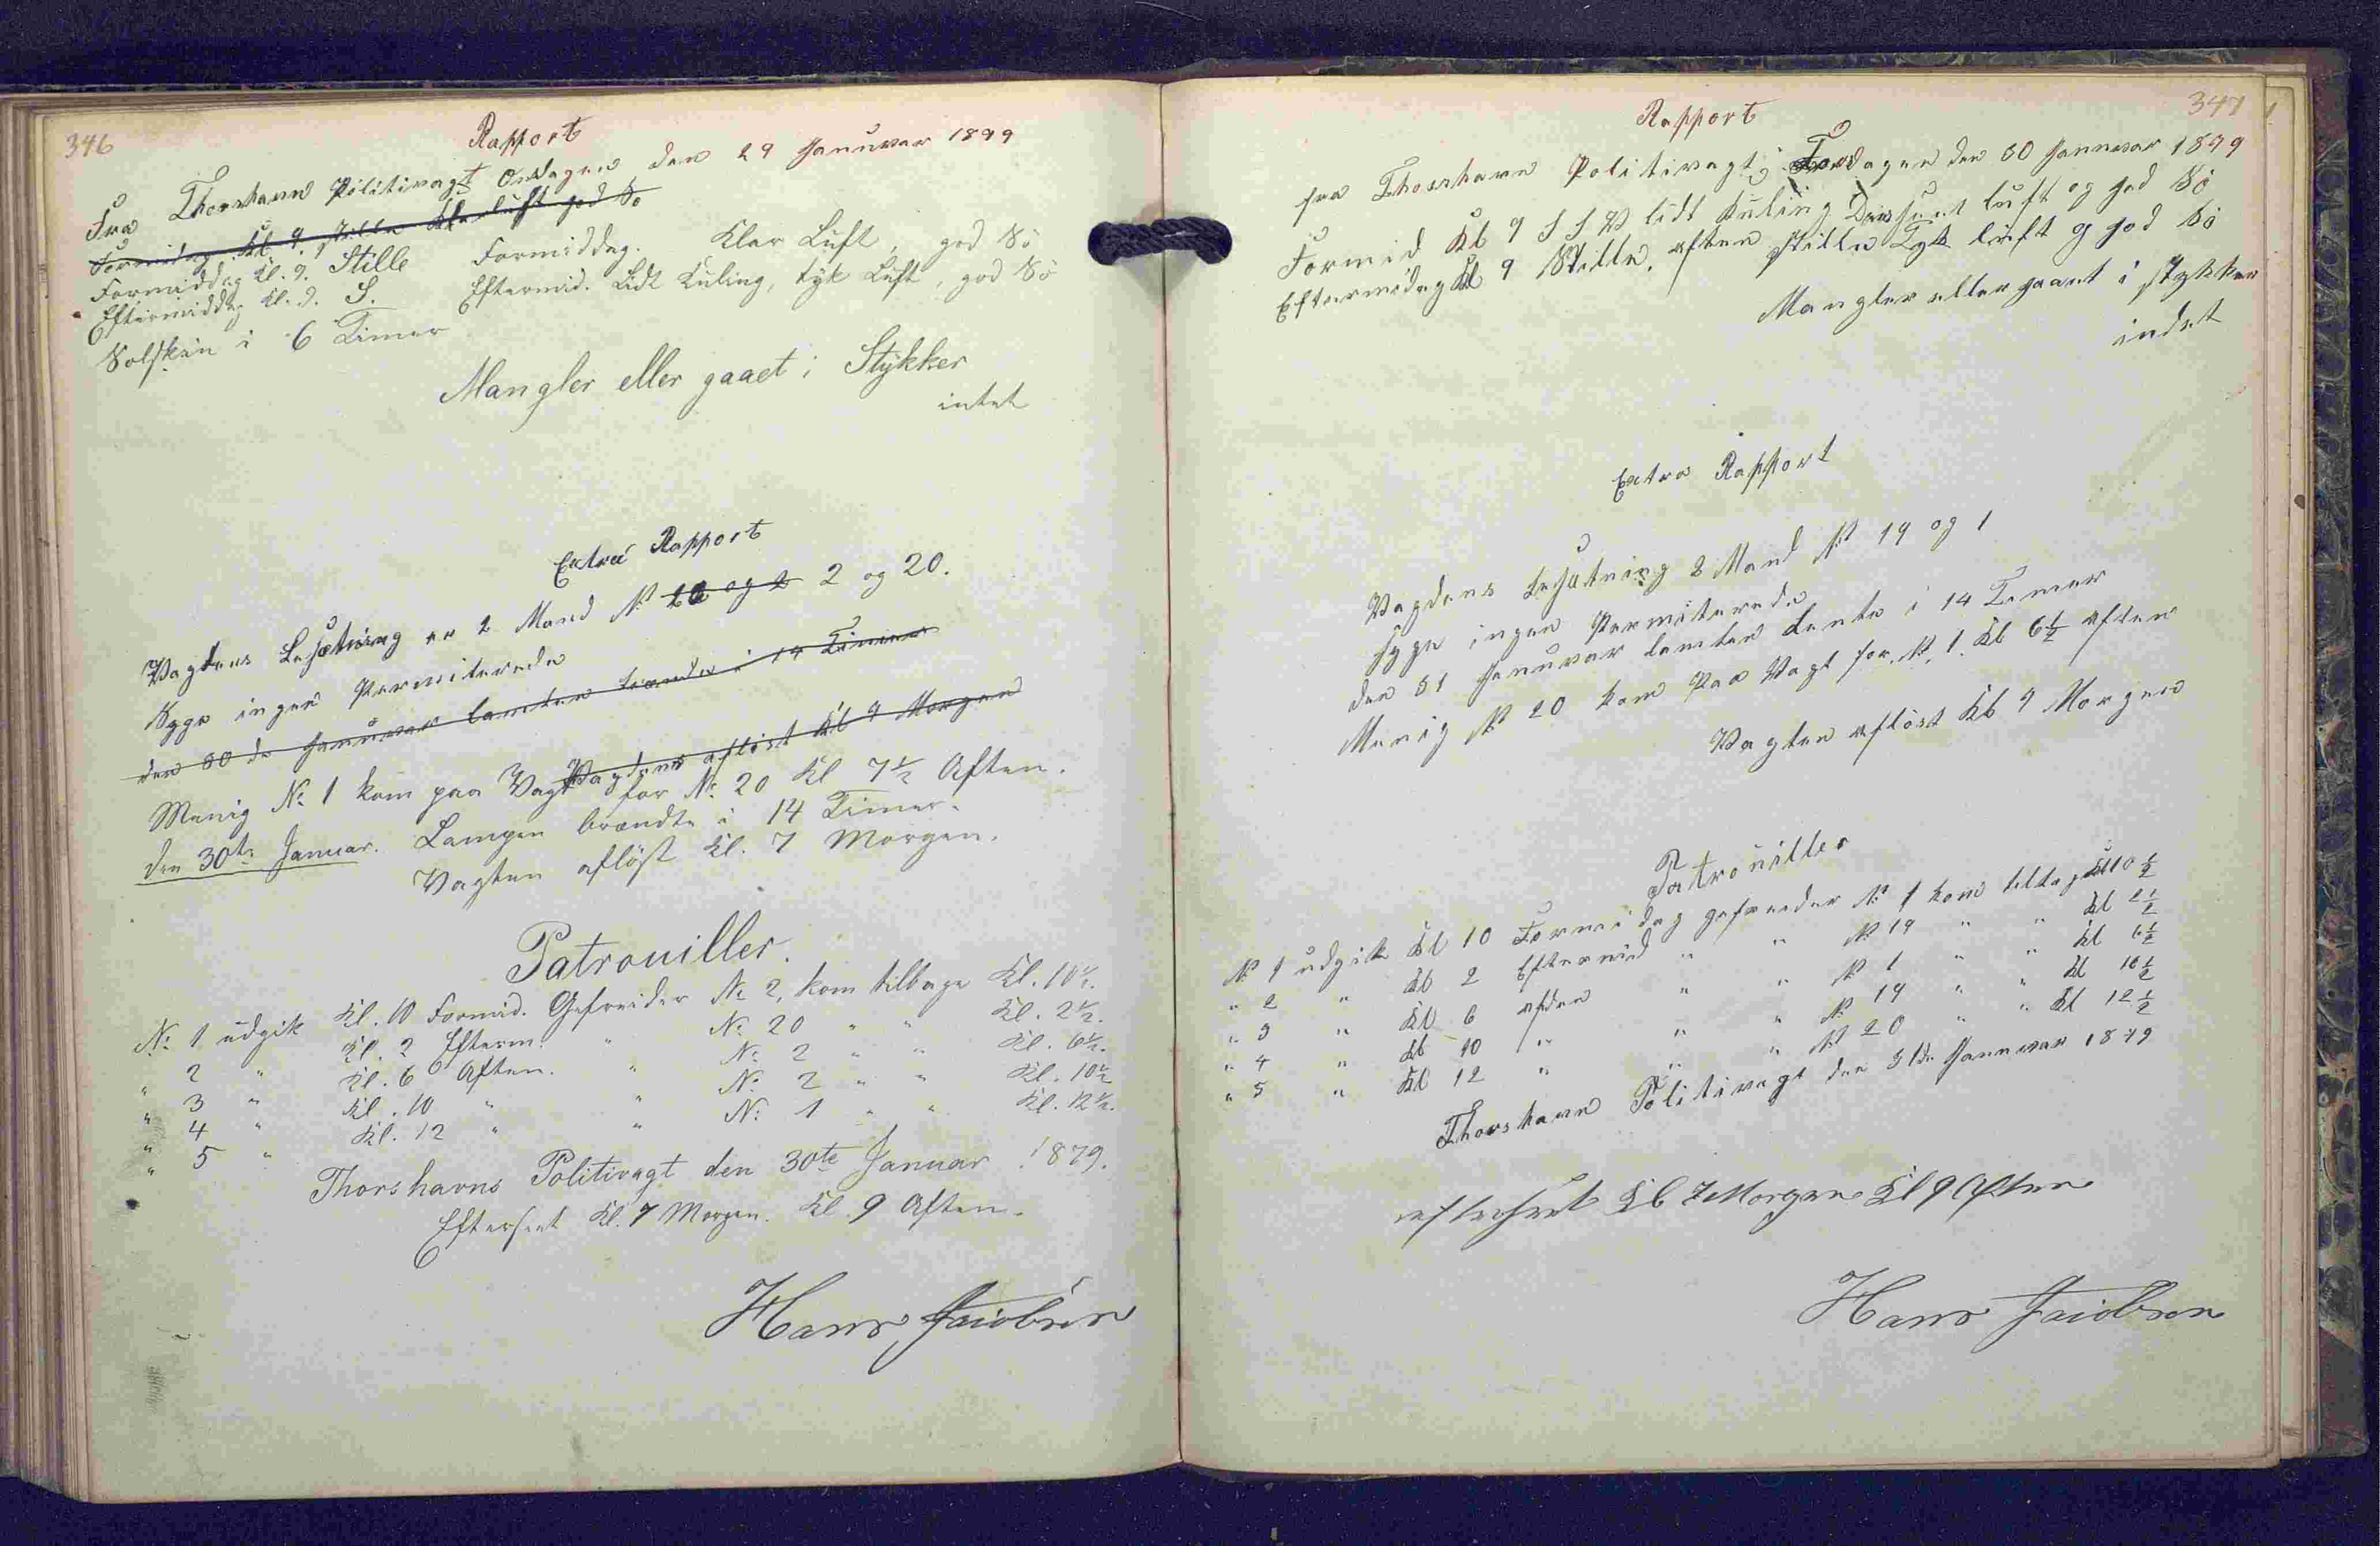 346
Rapport
Fra Thorshavns Politivagt Onsdagen den 29 Januvar 1879
Formidag Kl. 9. stille klar luft god Sö
Formiddag Kl. 9. Stille Formiddag. Klar Luft, god Sö
Eftermiddag Kl. 9. S. Eftermid. Lidt Kuling, tyk Luft, god Sö
Solskin i 6 Timer
Mangler eller gaaet i Stykker
intet
Extra Rapport
Vagdens Besætning er 2 Mand No og 2 2 og 20.
Syge ingen Permiterede
den 30 de Januvar lamten brende i 14 Timer
Vagdens aflöst Kl 7 Morgen
Menig No 1 kom paa Vagt for No 20 Kl 7½ Aften.
den 30te Januar. Lampen brændte i 14 Timer.
Vagten aflöst Kl. 7 Morgen.
Patrouiller.
No 1 udgik Kl. 10 Formid. Gefreider No 2, kom tilbage Kl. 10½.
" 2 " Kl. 2 Efterm. " No 20 " " Kl. 2½.
" 3 " Kl. 6 Aften. " No 2 " " Kl. 6½.
" 4 " Kl. 10 " " No 2 " " Kl. 10½
" 5 " Kl. 12 " " No 1 " " Kl. 12½.
Thorshavns Politivagt den 30te Januar 1879.
Efterseet Kl. 7 Morgen. Kl. 9 Aften.
Hans Jacobsen
347
Rapport
fra Thorshavn Politivagt Torsdagen den 30 Januvar 1879
Formid Kl 9 S S V lidt Kuling luft og god Sö
Eftermidag Kl 9 Stille, aften stille Tyk luft og god Sö
Mangler eller gaaet i stykker
indet
Extra Rapport
Vagdens besætning 2 Mand No 19 og 1
syge ingen Permiterede
den 31 Januvar lamten brente i 14 Timer
Menig No 20 kom Paa Vagt for No 1 Kl 6½ aften
Vagten aflöst Kl 7 Morgen
Patrouiller
No 1 udgik Kl 10 Formidag gefreider No 1 kom tilbage Kl 10½
" 2 " Kl 2 Eftermid " " No 19 " " Kl 2½
" 3 " Kl 6 aften " " No 1 " " Kl 6½
" 4 " Kl 10 " " " No 19 " " Kl 10½
" 5 " Kl 12 " " " No 20 " " Kl 12½
Thorshavn Politivagt den 31de Januvar 1879
efterseet Kl 7 Morgen Kl 9 Aften
Hans Jacobsen